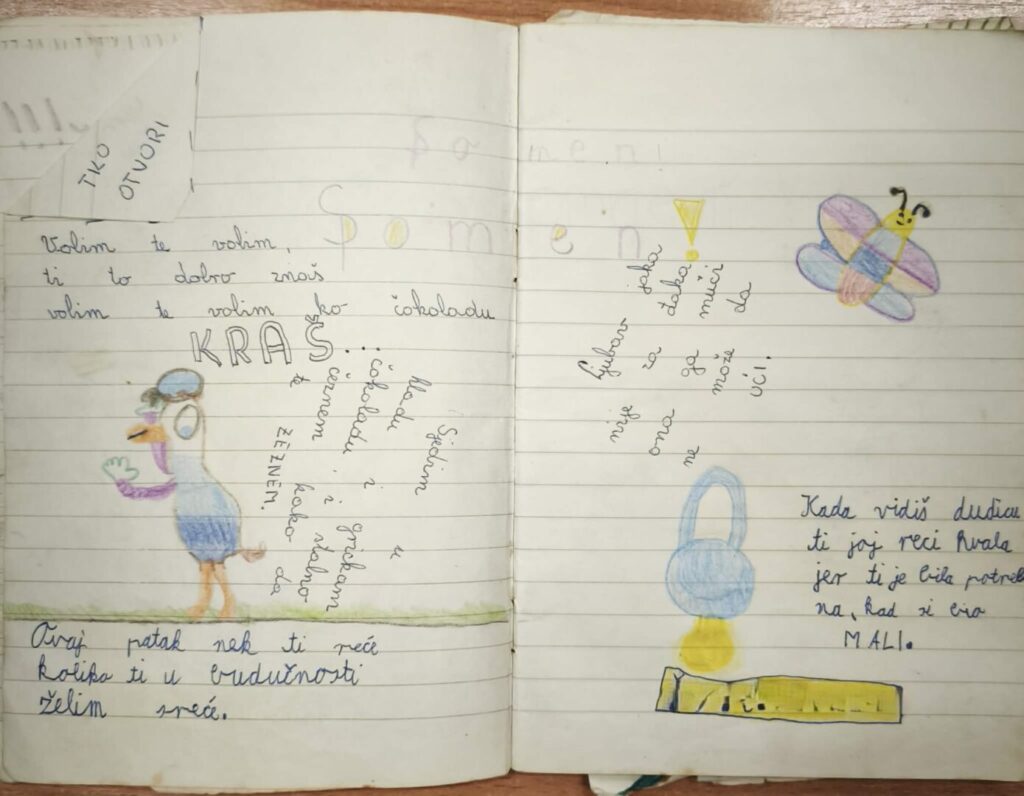 TKO
OTVORI
Spomen!
Volim te volim,
ti to dobro znaš
volim te volim ko čokoladu
KRAŠ.
Sjedim u
hladu i grickam
čokoladu, i stalno
čeznem kako da
te ZEZNEM.
Ovaj patak nek ti reče
koliko ti u budučnosti
želim sreće.
Ljubav jaka
nije za đaka
ona ga muči
ne može da
UČI.
Kada vidiš dudicu
ti joj reci hvala
jer ti je bila potreb
na, kad si bio
MALI.